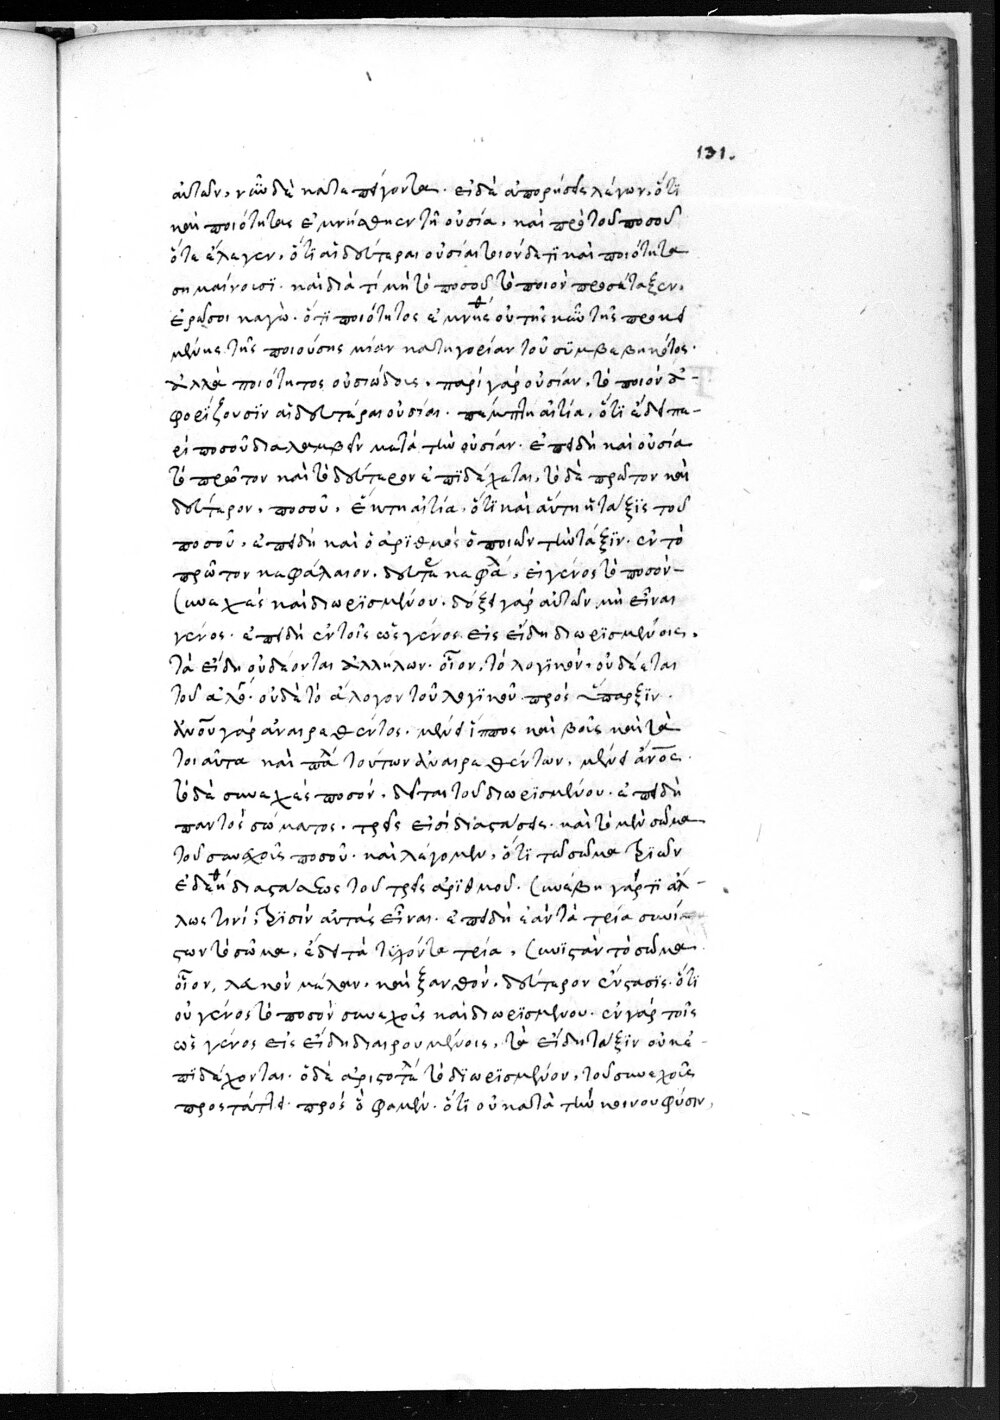 131.
αὐτῶν, νῦν δὲ κατεπείγοντα. εἰ δὲ ἀπορήσει λέγων, ὅτι
καὶ ποιότητος ἐμνήσθη ἐν τῇ οὐσία, καὶ πρὸ τοῦ ποσοῦ
ὅτε ἔλεγεν, ὅτι αἱ δεύτεραι οὐσίαι ποιόν δέ τι καὶ ποιότητα
σημαίνουσι. καὶ διὰ τί μὴ τὸ ποσοῦ τὸ ποιὸν προσέταξεν,
ἐρῶ σοι κἀγὼ. ὅτι ποιότητος ἐμνήσθη οὐ τῆς νῦν τῆς προκει
μένης τῆς ποιούσης μίαν κατηγορίαν τοῦ συμβεβηκότος.
ἀλλὰ ποιότητος οὐσιώδους, περὶ γὰρ οὐσίαν, τὸ ποιὸν ἀ-
φορίζουσιν αἱ δεύτεραι οὐσίαι. πέμπτη αἰτία, ὅτι ἔδει πε-
ρὶ ποσοῦ διαλαμβεῖν μετὰ τὴν οὐσίαν. ἐπειδὴ καὶ οὐσία
τὸ πρῶτον καὶ τὸ δεύτερον ἐπιδέχεται, τὸ δὲ πρῶτον καὶ
δεύτερον, ποσοῦ, ἕκτη αἰτία, ὅτι καὶ αὕτη ἡ τάξις τοῦ
ποσοῦ, ἐπειδὴ καὶ ὁ ἀριθμὸς ὁ ποιῶν τὴν τάξιν. ἐν τὸ
πρῶτον κεφάλαιον. δεύτε κεφλ, εἰ γένος τὸ ποσὸν
συνεχές καὶ διωρισμένου. δόξει γὰρ αὐτῶν μὴ εἶναι
γένος. ἐπειδὴ ἐν τοῖς ὡς γένος εἰς εἴδη διωρισμένοις,
τὰ εἴδη οὐ δέονται ἀλλήλων. οἷον, τὸ λογικὸν, οὐ δέεται
τοῦ ἀλό. οὐδὲ τὸ ἄλογον τοῦ λογικοῦ πρὸς ὕπαρξιν.
ἀνου γὰρ ἀναιρεθέντος. μένει ἵπος καὶ βοῦς καὶ τὰ
τοιαῦτα καὶ πάλ τούτων ἀναιρεθέντων, μένει ἄνος.
τὸ δὲ συνεχές ποσόν, δεῖται τοῦ διωρισμένου. ἐπειδὴ
παντὸς σώματος. τρεῖς εἰσὶ διαστάσεις. καὶ τὸ μὲν σῶμα
τοῦ συνεχοῦς ποσοῦ. καὶ λέγομεν, ὅτι τὸ σῶμα τριῶν
ἐδεήθη διαστάσεως τοῦ τρεῖς ἀριθμοῦ. συνέβη γάρ τι ἀλ-
λως τινί, τρισὶν αὐτάς εἶναι. ἐπειδὴ ἐὰν τὰ τρία συνίσ
των τὸ σῶμα, ἔδει τὰ τυχόντα τρία, συνιστᾶν τὸ σῶμα.
οἷον, λευκὸν μέλαν, καὶ ξανθόν. δεύτερον ἔνστασις. ὅτι
οὐ γένος τὸ ποσὸν συνεχοῦς καὶ διωρισμένου. ἐν γὰρ τοῖς
ὡς γένος εἰς εἴδη διαιρουμένοις, τὰ εἴδη τάξιν οὐκ ἐ-
πιδέχονται. ὁ δὲ ἀριστοτέλ τὸ διωρισμένον, τοῦ συνεχοῦς
προτάττει. πρὸς ὃ φαμὲν. ὅτι οὐ κατὰ τὴν κοινου φύσιν,